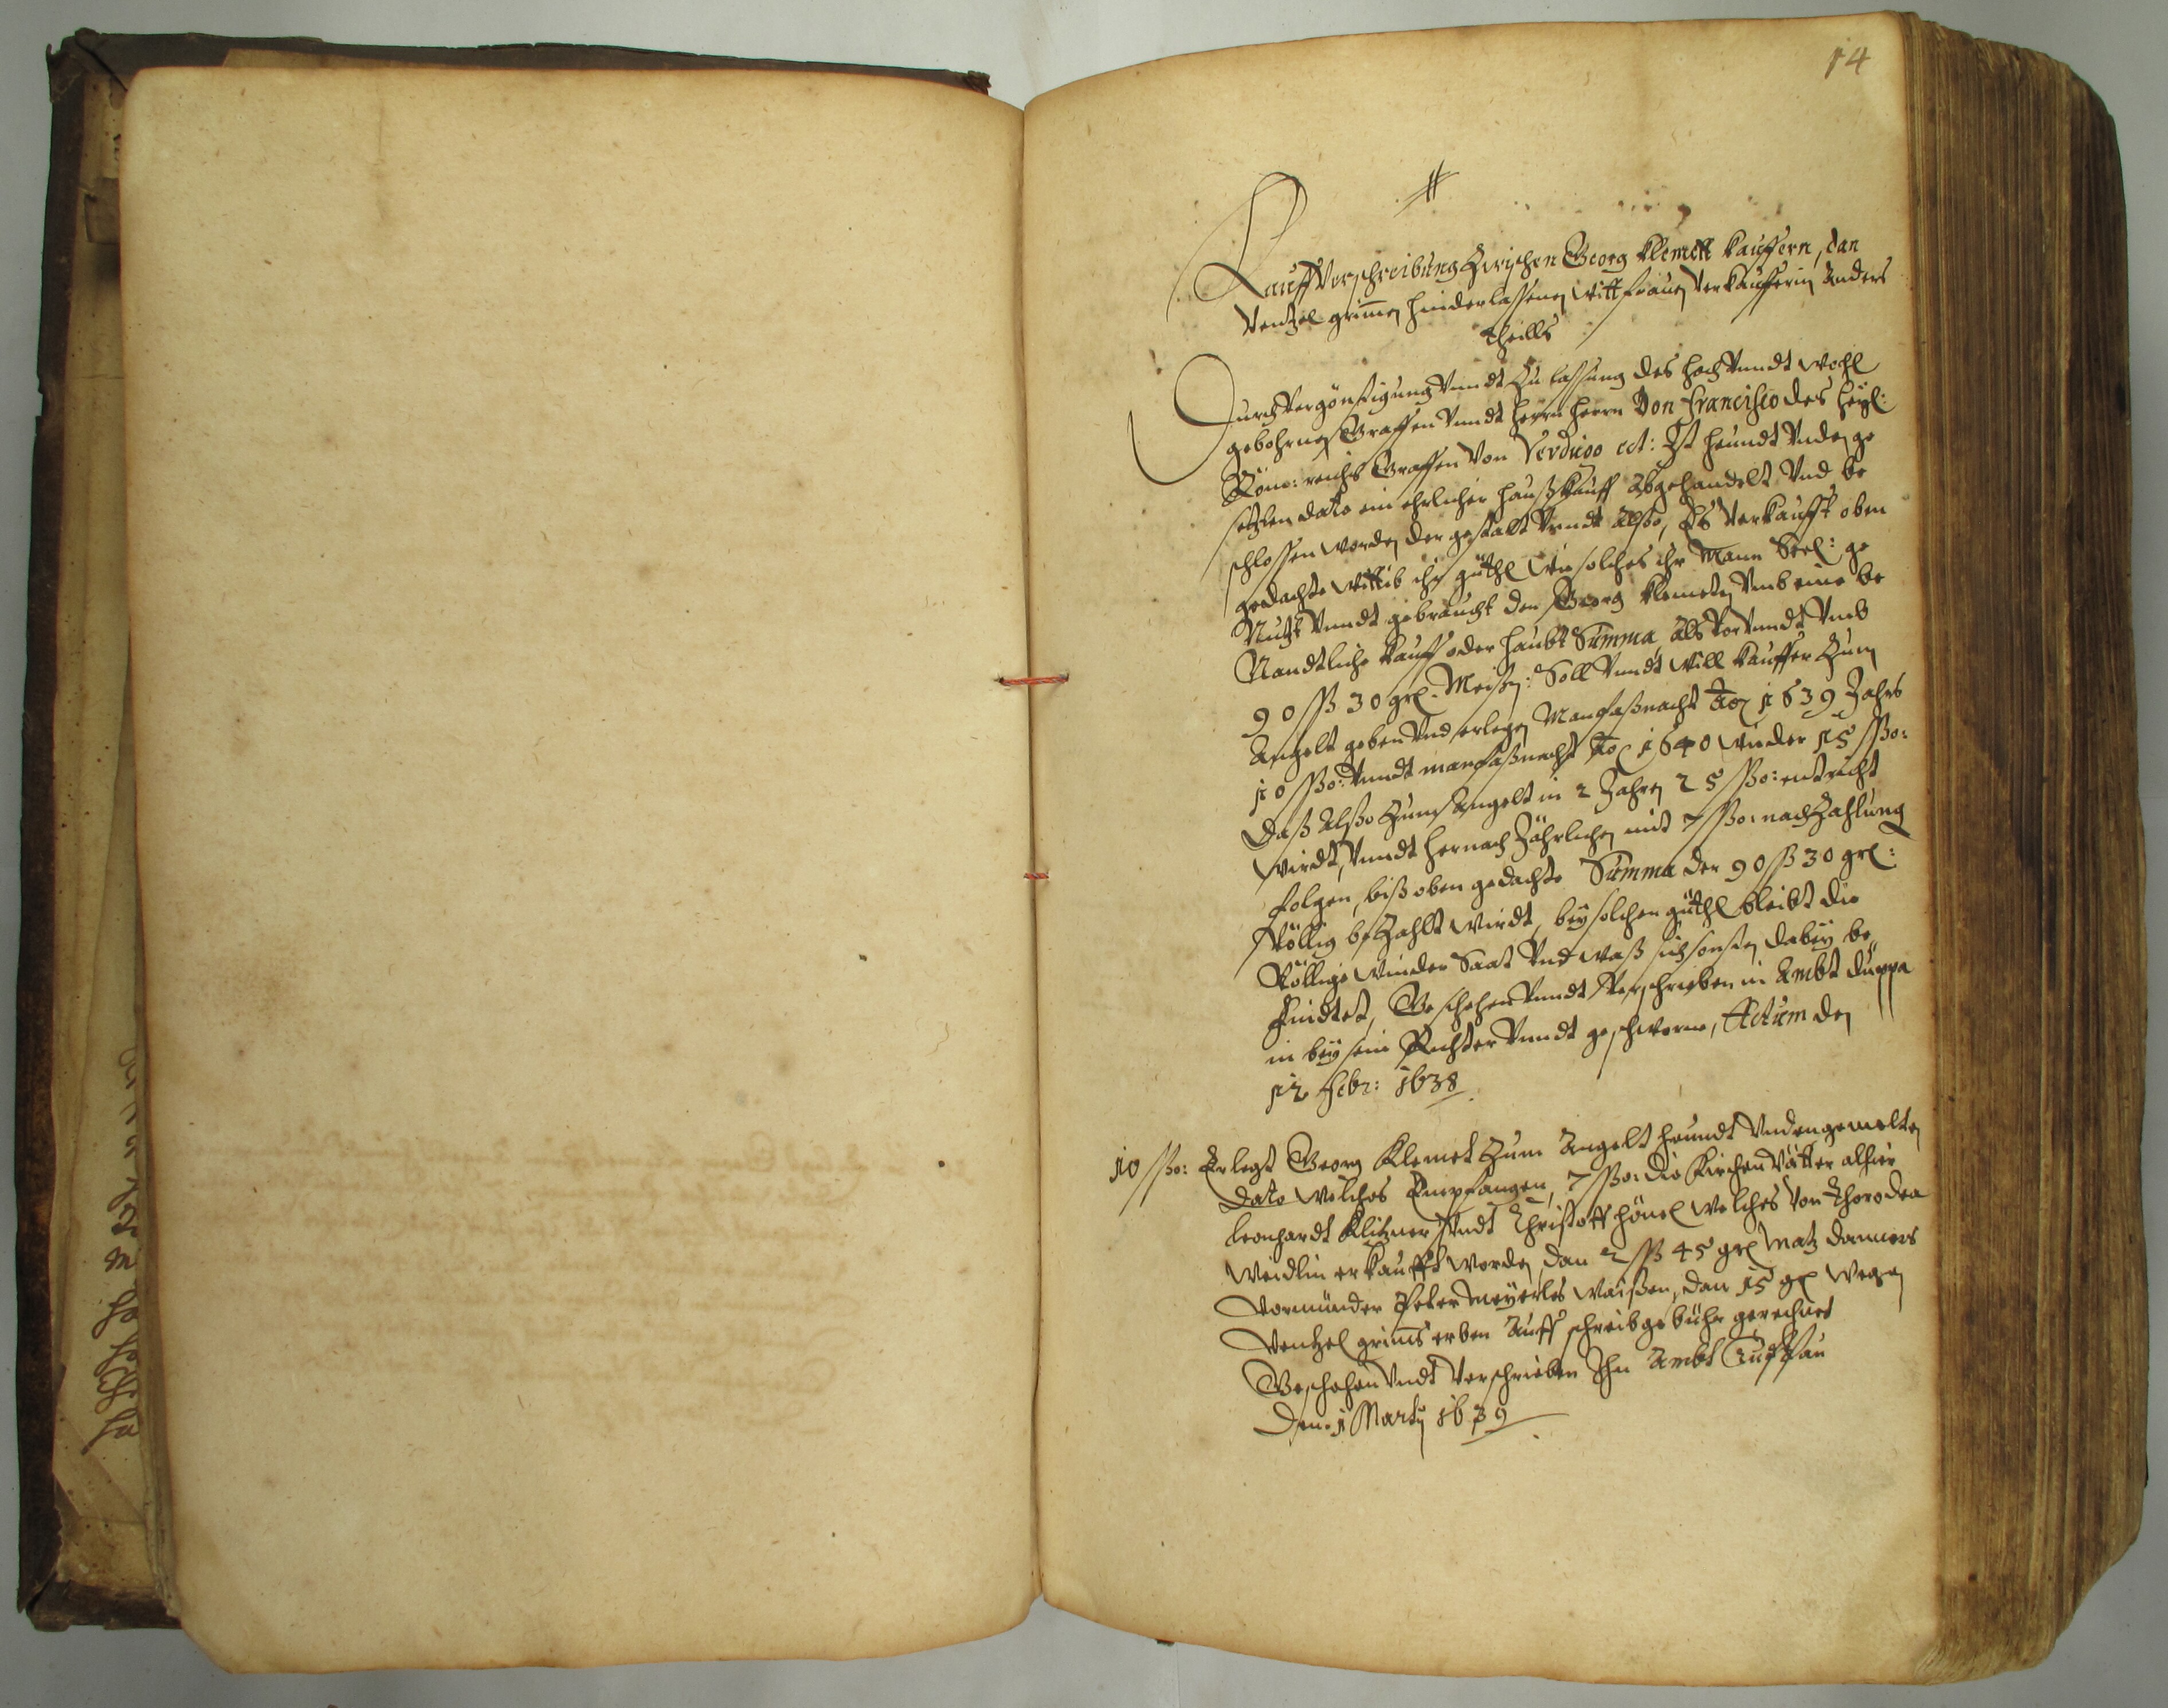 14
Kauff Verschreibung Zwischen Georg Klemett kauffern, dan
Ventzel grimen hinderlassenen Wittfrauen Verkaufferin Anders
theills
Durch Vergönstigung Vnndt Zu lassung des hoch Vnndt Wohl
gebohrnen Graffen Vnndt herrn herrn Don Francisco des heyl:
Röm: reichs Graffen Von Verdugo ect: Ist heundt Vnden ge
setzten dato ein ehrlicher hauß kauff Abgehandelt Vnd be
schlossen worden der gestalt Vnndt Alßo, Es Verkaufft oben
gedachte Wittib ihr güthl wie solches ihr Mann Seel: ge
Nutzt Vnndt gebraucht den Georg Klemeten Vmb eine be
Nandtliche kauff oder haubt Summa, Als Vor Vnndt Vmb
90 ß 30 grl. Meißn: Soll Vnndt will kauffer Zum
Angelt geben Vnd erlegen Manfaßnacht Ao 1639 Jahrs
10 ßo: Vnndt manfaßnacht Ao 1640 wieder 15 ßo:
Daß Alßo Zum Angelt in 2 Jahren 25 ßo: entricht
wirdt, Vnndt hernach Jährlichen mit 7 ßo: nach Zahlung
folgen, biß oben gedachte Summa der 90 ß 30 grl:
Völlig beZahlt wirdt, bey solchen güthl bleibt die
Völlige winder Saat Vnd waß sich sonsten dabey be
findtet, Geschehen Vnndt Verschrieben in Ambt duppa
in bey sein Richter Vnndt geschworne, Actum den
12 Febr: 1638
10 ßo: Erlegt Georg Klemet Zum Angelt heundt Vnden gemelten
dato welches Empfangen, 7 ßo: die Kirchen Vätter alhier
leonhardt Klitzner Vndt Christoff hönel welches Von Thorodea
Weidlin erkaufft worden, dan 2 ß 45 grl Matz Danners
Vormünder Peter Meyerles Waisen, dan 15 gl wegen
Ventzel grims erben Auff schreibgebühr gerechnet
Geschehen Vndt Verschrieben Ihn Ambt
Den 1 Marty 1639